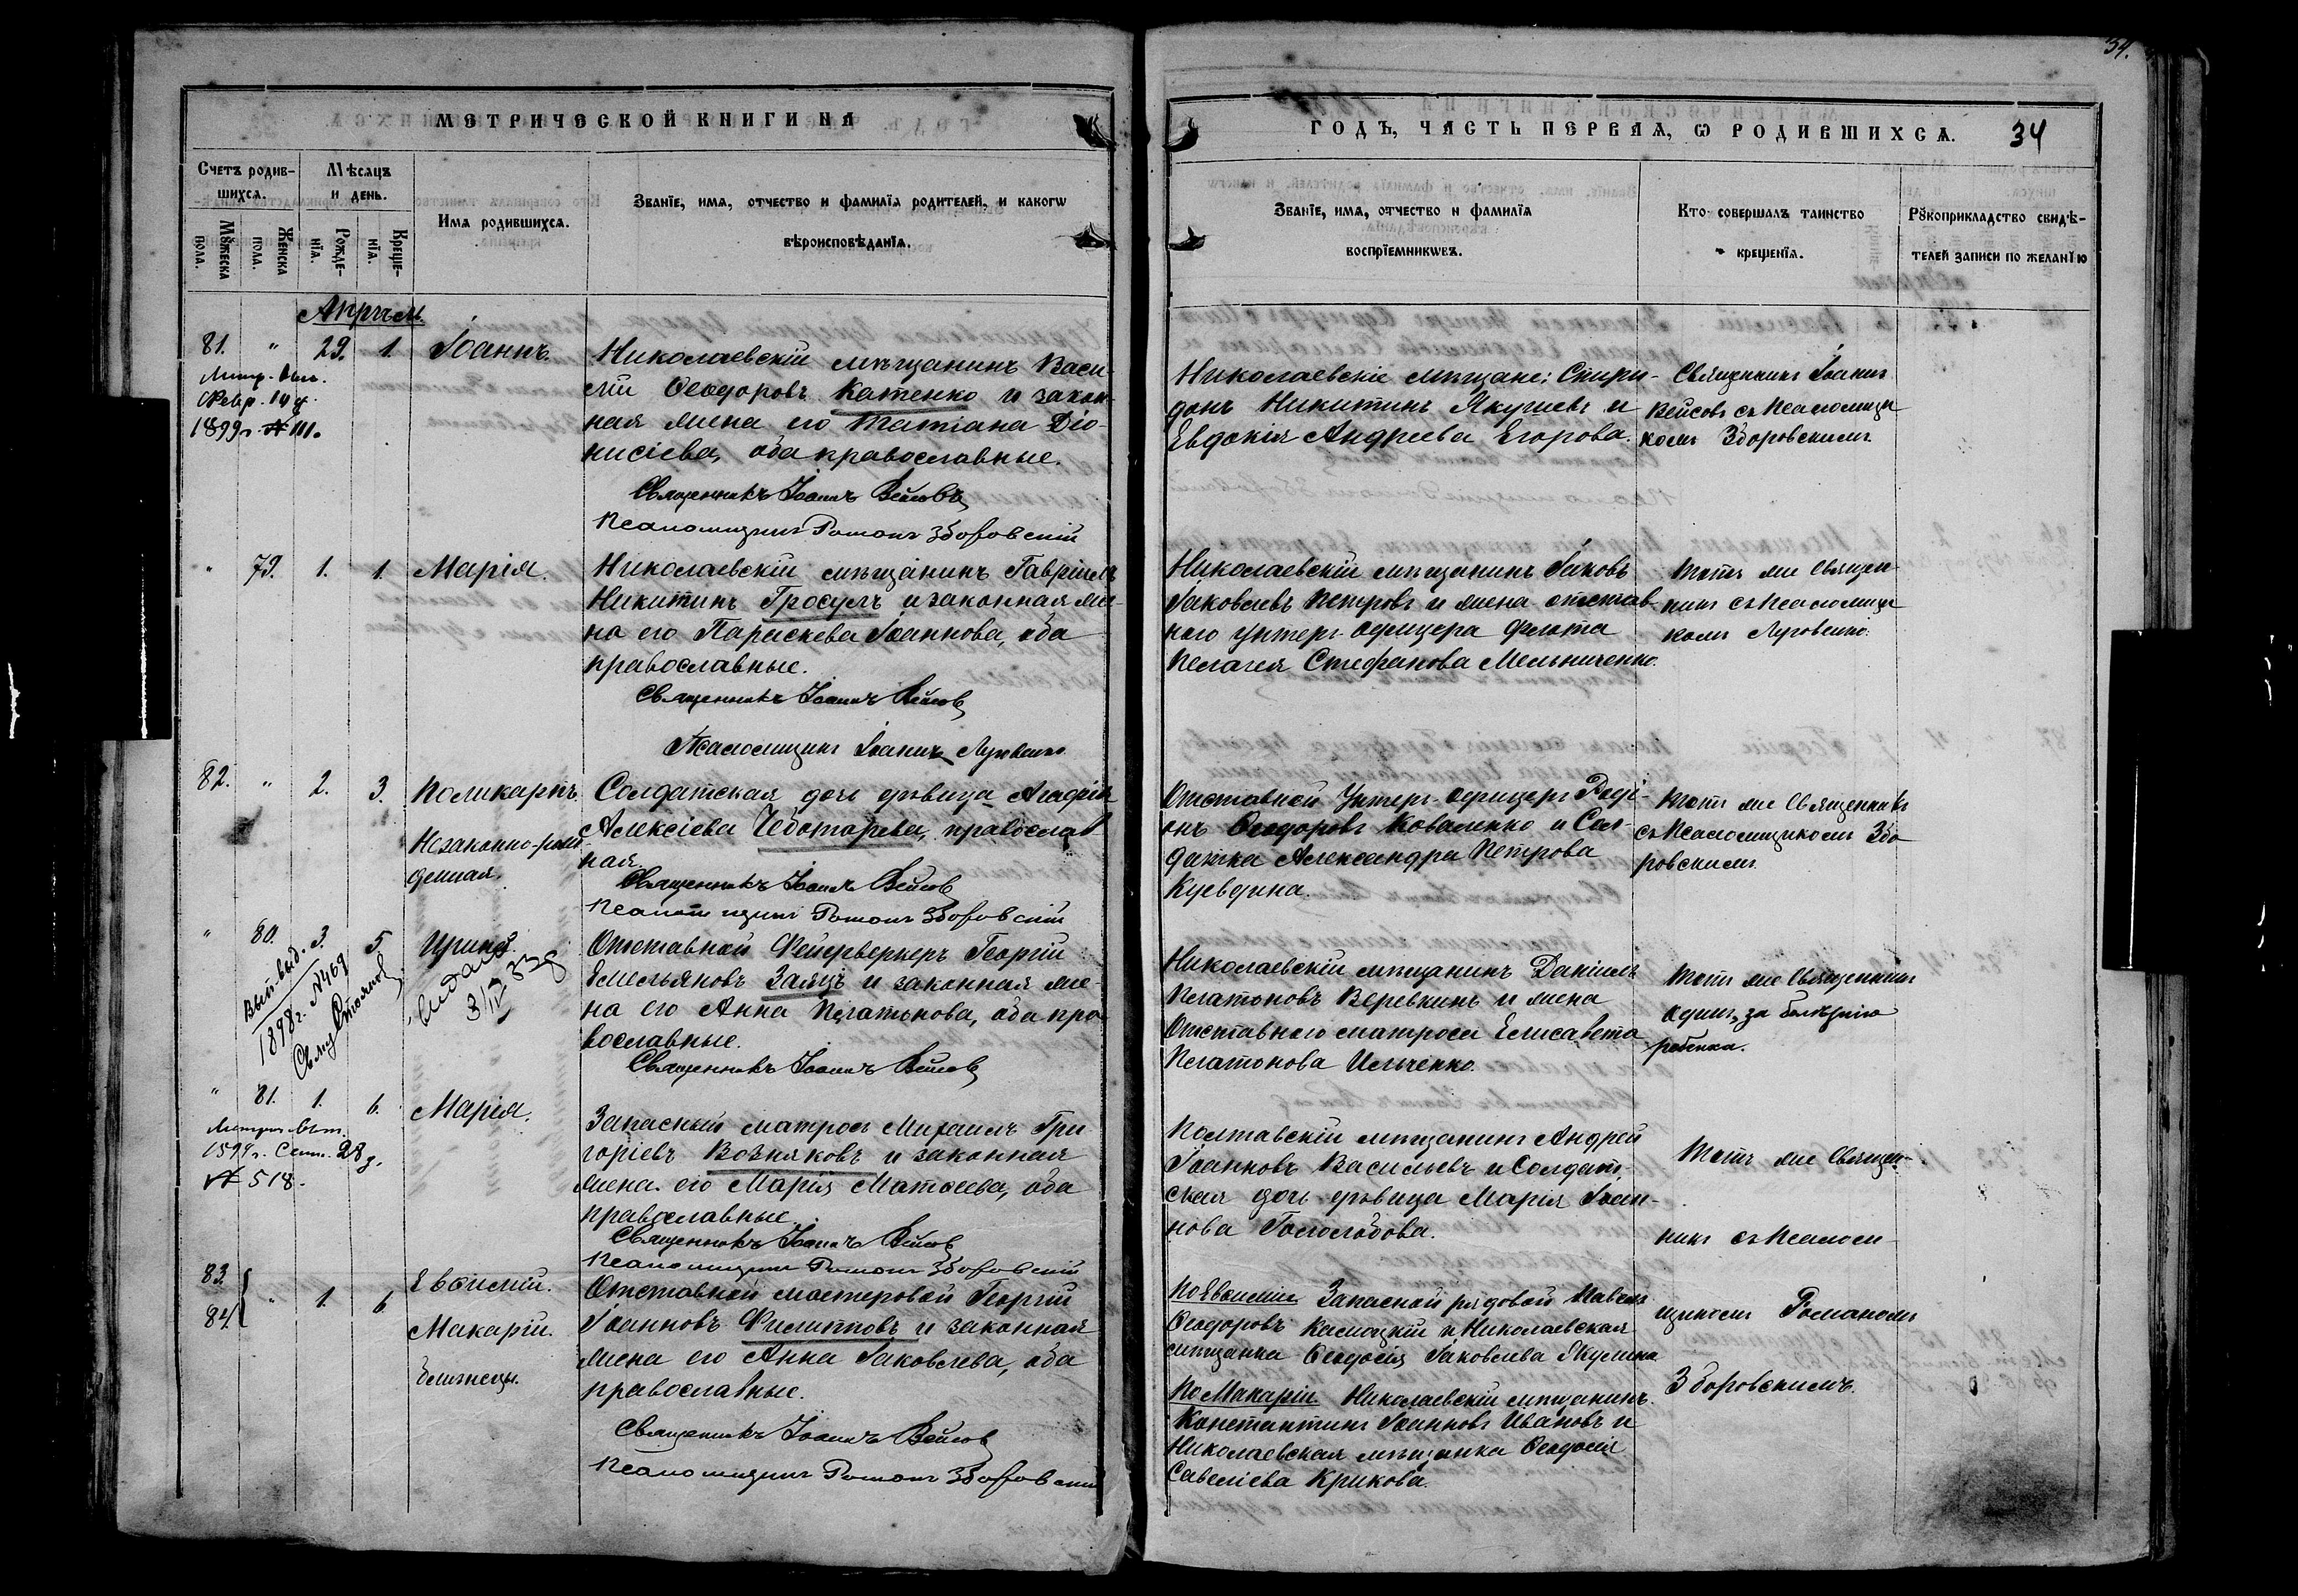 34.
МЕТРИЧЕСКОЙ КНИГИ НА
ГОДЪ, ЧАСТЬ ПЕРВАЯ, Ѡ РОДИВШИХСЯ.
34
Счетъ родив-
шихся.
Мѣсяцъ
и день.
Мꙋжеска
пола.
Женска
пола.
Рожде-
нїя.
Креще-
нїя.
Имя родившихся.
Званїе, имя, отчество и фамилїя родителей, и какогѡ
вѣроисповѣданїя.
Званїе, имя, отчество и фамилїя
воспрїемникѡвъ.
Кто совершалъ таинство
крещенїя.
Рꙋкоприкладство свидѣ-
телей записи по желанїю
Апрѣль.
81. " 29. 1. Іоаннъ.
Метр. вып.
Февр. 14 д.
1899 г. № 111.
Николаевскій мѣщанинъ Васи-
лій Ѳеодоровъ Катенко и закон-
ная жена его Татіана Діо-
нисіева, оба православные.
Священникъ Іоаннъ Вейсовъ
Псаломщикъ Романъ Зборовскій
Николаевскіе мѣщане: Спири-
донъ Никитинъ Якушевъ и
Евдокія Андреева Егорова.
Священникъ Іоаннъ
Вейсовъ съ псаломщи
комъ Зборовскимъ.
" 79. 1. 1. Марія.
Николаевскій мѣщанинъ Гавріилъ
Никитинъ Гросулъ и законная же-
на его Параскева Іоаннова, оба
православные.
Священникъ Іоаннъ Вейсовъ
Псаломщикъ Іоаннъ Луговенко
Николаевскій мѣщанинъ Іаковъ
Іаковлевъ Петровъ и жена отстав-
ного унтеръ-офицера флота
Пелагея Стефанова Мельниченко.
Тотъ же священ
никъ съ псаломщи
комъ Луговенко.
82. " 2. 3. Поликарпъ.
Незаконно-рож
денная.
Солдатская дочь дѣвица Агафія
Алексіева Чеботарева, православ
ная.
Священникъ Іоаннъ Вейсовъ
Псаломщикъ Романъ Зборовскій
Отставной Унтеръ-офицеръ Родi-
онъ Ѳеодоровъ Коваленко и Сол-
датка Александра Петрова
Куевдина.
Тотъ же Священникъ
съ псаломщикомъ Збо
ровскимъ.
" 80. 3. 5. Ирина.
Вып. выд.
1898 г. № 469
Свящ. Стоянов
Видано
3/IV 33 г
Отставной Фейерверкеръ Георгій
Емельяновъ Заяцъ и законная же-
на его Анна Платонова, оба пра-
вославные.
Священникъ Іоаннъ Вейсовъ
Николаевскій мѣщанинъ Даніилъ
Платоновъ Веревкинъ и жена
Отставного матроса Елисавета
Платонова Ильченко.
Тотъ же Священникъ
одинъ, за болѣзнію
ребенка.
" 81. 1. 6. Марія.
Метрич. вып.
1899 г. Сент. 28 д.
№ 518.
Запасный матросъ Михаилъ Гри
горіевъ Возняковъ и законная
жена его Марія Матѳеева, оба
православные.
Священникъ Іоаннъ Вейсовъ
Псаломщикъ Романъ Зборовскій
Полтавскій мѣщанинъ Андрей
Іоанновъ Васильевъ и Солдат-
ская дочь дѣвица Марія Іоан-
нова Гололобова.
Тотъ же Священ-
никъ съ псалом-
83.
84. " 1. 6. Евѳимій.
Макарій.
близнецы.
Отставной мастеровой Георгій
Іоанновъ Филипповъ и законная
жена его Анна Іаковлева, оба
православные.
Священникъ Іоаннъ Вейсовъ
Псаломщикъ Романъ Зборовскій
По Евѳиміи Запасной рядовой Павелъ
Ѳеодоровъ и Николаевская
мѣщанка Ѳеодосія Іаковлева Якушина
По Макаріи Николаевскій мѣщанинъ
Константинъ Іоанновъ Ивановъ и
Николаевская мѣщанка Ѳеодосія
Савеліева Крикова.
щикомъ Романомъ
Зборовскимъ.